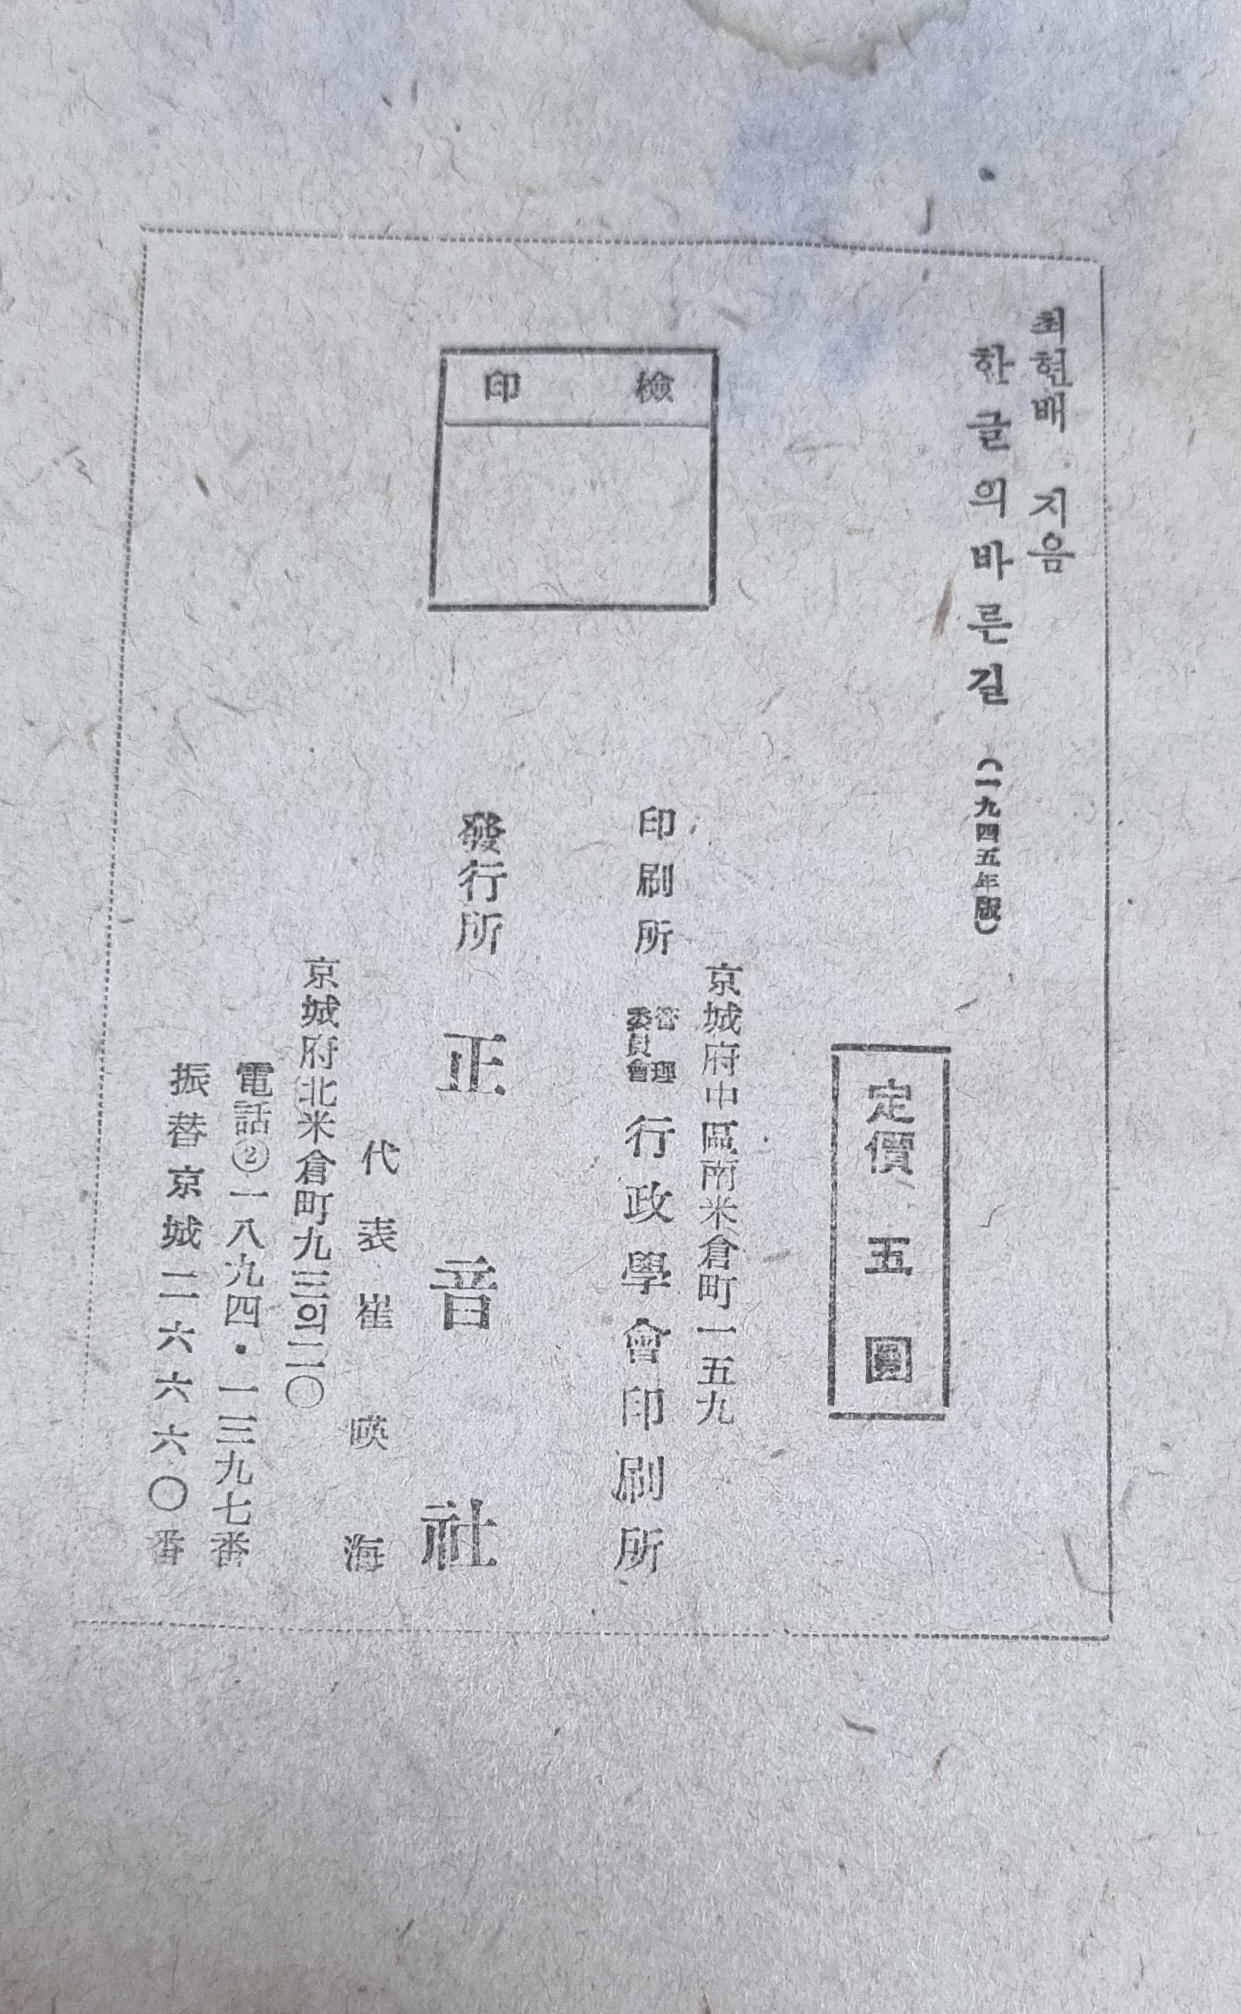 최현배 지음
한글의바른길 (一九四五年版)
定價 五圓
檢印
京城府中區南米倉町一五九
印刷所 管理委員會 行政學會印刷所
發行所 正音社
代表 崔暎海
京城府北米倉町九三의二〇
電話②一八九四・一三九七番
振替京城二六六六〇番